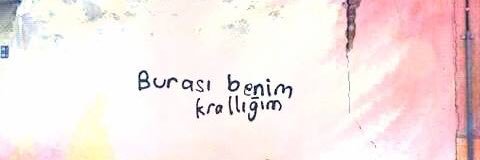 Burası benim
krallığım